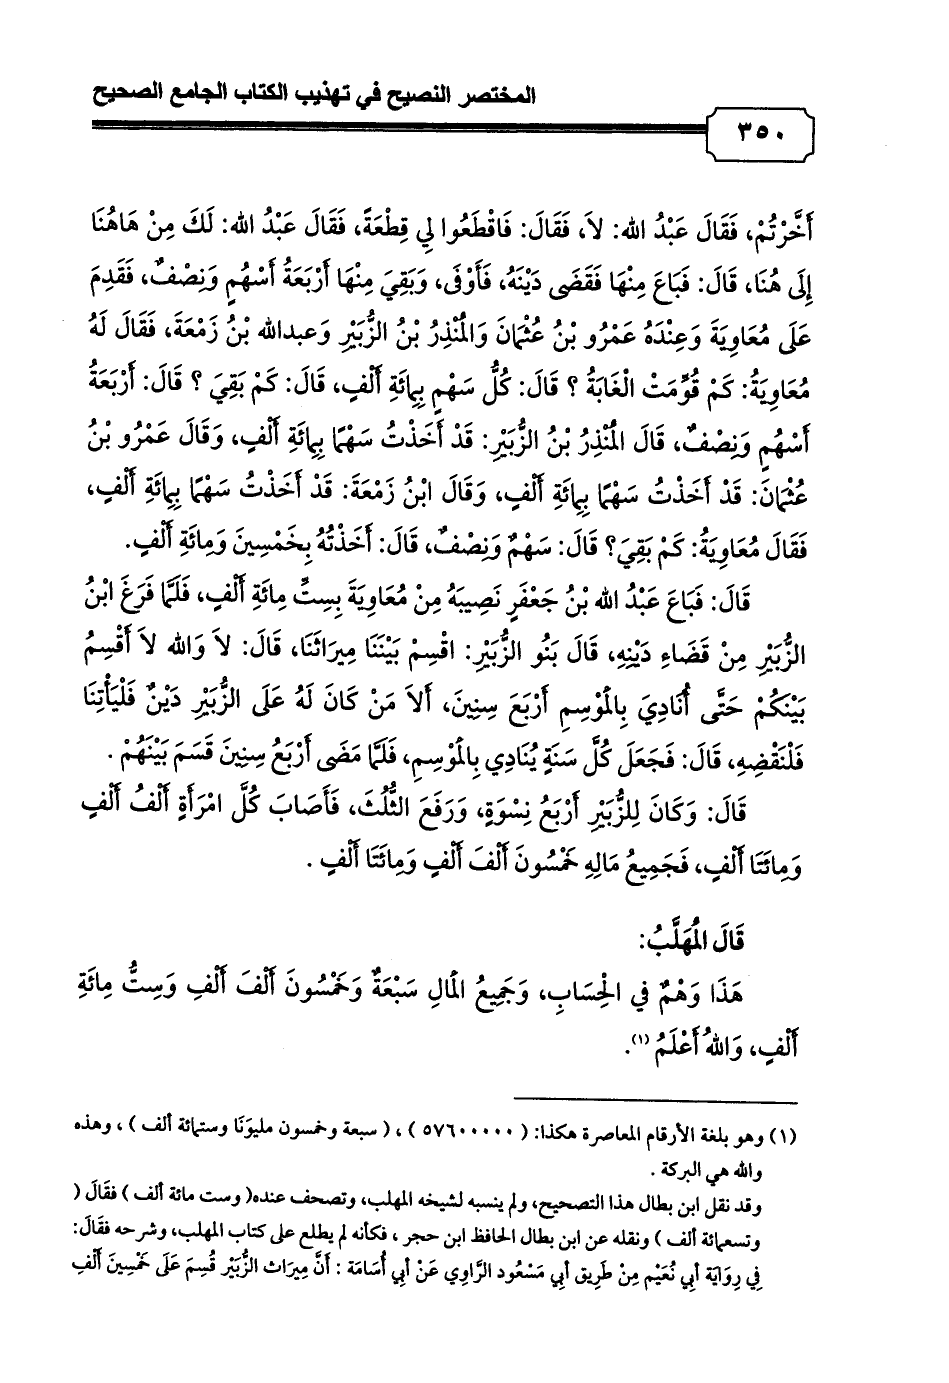 المختصر النصيح في تهذيب الكتاب الجامع الصحيح
٣٥٠
أَخَّرْتُمْ، فَقَالَ عَبْدُ الله: لاَ، فَقَالَ: فَاقْطَعُوا لِي قِطْعَةً، فَقَالَ عَبْدُ الله: لَكَ مِنْ هَاهُنَا
إِلَى هُنَا، قَالَ: فَبَاعَ مِنْهَا فَقَضَى دَيْنَهُ، فَأَوْفَى، وَبَقِيَ مِنْهَا أَرْبَعَةُ أَسْهُمٍ وَنِصْفٌ، فَقَدِمَ
عَلَى مُعَاوِيَةَ وَعِنْدَهُ عَمْرُو بْنُ عُثْمَانَ وَالْمُنْذِرُ بْنُ الزُّبَيْرِ وَعبدالله بْنُ زَمْعَةَ، فَقَالَ لَهُ
مُعَاوِيَةُ: كَمْ قُوِّمَتْ الْغَابَةُ ؟ قَالَ: كُلُّ سَهْمٍ بِمِائَةِ أَلْفٍ، قَالَ: كَمْ بَقِيَ ؟ قَالَ: أَرْبَعَةُ
أَسْهُمٍ وَنِصْفٌ، قَالَ الْمُنْذِرُ بْنُ الزُّبَيْرِ: قَدْ أَخَذْتُ سَهْمًا بِمِائَةِ أَلْفٍ، وَقَالَ عَمْرُو بْنُ
عُثْمَانَ: قَدْ أَخَذْتُ سَهْمًا بِمِائَةِ أَلْفٍ، وَقَالَ ابْنُ زَمْعَةَ: قَدْ أَخَذْتُ سَهْمًا بِمِائَةِ أَلْفٍ،
فَقَالَ مُعَاوِيَةُ: كَمْ بَقِيَ؟ قَالَ: سَهْمٌ وَنِصْفٌ، قَالَ: أَخَذْتُهُ بِخَمْسِينَ وَمِائَةِ أَلْفٍ.
قَالَ: فَبَاعَ عَبْدُ الله بْنُ جَعْفَرٍ نَصِيبَهُ مِنْ مُعَاوِيَةَ بِسِتِّ مِائَةِ أَلْفٍ، فَلَمَّا فَرَغَ ابْنُ
الزُّبَيْرِ مِنْ قَضَاءِ دَيْنِهِ، قَالَ بَنُو الزُّبَيْرِ: اقْسِمْ بَيْنَنَا مِيرَاثَنَا، قَالَ: لاَ وَالله لاَ أَقْسِمُ
بَيْنَكُمْ حَتَّى أُنَادِيَ بِالْمَوْسِمِ أَرْبَعَ سِنِينَ، أَلاَ مَنْ كَانَ لَهُ عَلَى الزُّبَيْرِ دَيْنٌ فَلْيَأْتِنَا
فَلْنَقْضِهِ، قَالَ: فَجَعَلَ كُلَّ سَنَةٍ يُنَادِي بِالْمَوْسِمِ، فَلَمَّا مَضَى أَرْبَعُ سِنِينَ قَسَمَ بَيْنَهُمْ .
قَالَ: وَكَانَ لِلزُّبَيْرِ أَرْبَعُ نِسْوَةٍ، وَرَفَعَ الثُّلُثَ، فَأَصَابَ كُلَّ امْرَأَةٍ أَلْفُ أَلْفٍ
وَمِائَتَا أَلْفٍ، فَجَمِيعُ مَالِهِ خَمْسُونَ أَلْفَ أَلْفٍ وَمِائَتَا أَلْفٍ .
قَالَ الْمُهَلَّبُ:
هَذَا وَهْمٌ فِي الْحِسَابِ، وَجَمِيعُ الْمَالِ سَبْعَةٌ وَخَمْسُونَ أَلْفَ أَلْفِ وَسِتُّ مِائَةِ
أَلْفٍ، وَاللهُ أَعْلَمُ (١).
(١) وهو بلغة الأرقام المعاصرة هكذا: ( ٥٧٦٠٠٠٠٠ ) ، ( سبعة وخمسون مليوَنَا وستمائة ألف ) ، وهذه
والله هي البركة .
وقد نقل ابن بطال هذا التصحيح، ولم ينسبه لشيخه المهلب، وتصحف عنده( وست مائة ألف ) فقَالَ (
وتسعمائة ألف ) ونقله عن ابن بطال الحافظ ابن حجر ، فكأنه لم يطلع على كتاب المهلب، وشرحه فقَالَ:
فِي رِوَايَة أَبِي نُعَيْم مِنْ طَرِيق أَبِي مَسْعُود الرَّاوِي عَنْ أَبِي أُسَامَة : أَنَّ مِيرَاث الزُّبَيْر قُسِمَ عَلَى خَمْسِينَ أَلْفِ